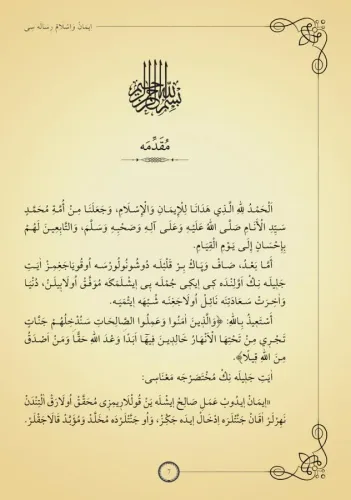 ايمان و اسلام رساله سى
بسم الله الرحمن الرحيم
مُقَدِّمَه
اَلْحَمْدُ لِلهِ الَّذِي هَدَانَا لِلْإِيمَانِ وَالْإِسْلَامِ، وَجَعَلَنَا مِنْ أُمَّةِ مُحَمَّدٍ
سَيِّدِ الْأَنَامِ صَلَّى اللهُ عَلَيْهِ وَعَلَى آلِهِ وَصَحْبِهِ وَسَلَّمَ، وَالتَّابِعِينَ لَهُمْ
بِإِحْسَانٍ إِلَى يَوْمِ الْقِيَامِ.
اَمَّا بَعْدُ، صَاف وَپَاك بِرْ قَلْبْلَه دُوشُونُولُورْسَه أوقُويَاجَغِمِزْ اٰيَتِ
جَلِيلَه نِكْ اَوَّلِنْدَه كِى اِيكِى جُمْلَه يِى اِيشْلَمَكَه مُوَفَّقْ أولَابِيلَنْ، دُنْيَا
وَآخِرَتْ سَعَادَتِنَه نَائِلْ أولَاجَغِنَه شُبْهَه اِيتْمَيَه.
اَسْتَعِيذُ بِاللهِ: ﴿وَالَّذِينَ اٰمَنُوا وَعَمِلُوا الصَّالِحَاتِ سَنُدْخِلُهُمْ جَنَّاتٍ
تَجْرِي مِنْ تَحْتِهَا الْاَنْهَارُ خَالِدِينَ فِيهَا اَبَدًا وَعْدَ اللهِ حَقًّا وَمَنْ اَصْدَقُ
مِنَ اللهِ قِيلًا﴾.
اٰيَتِ جَلِيلَه نِكْ مُخْتَصَرْجَه مَعْنَاسِى:
«اِيمَانْ اِيدُوبْ عَمَلِ صَالِحْ اِيشْلَه يَنْ قُولْلَارِيمِزِى مُحَقَّقْ أولَارَقْ اَلْتِنْدَنْ
نَهِرْلَرْ اَقَانْ جَنَّتْلَرَه اِدْخَالْ اِيدَه جَكِزْ، وَأو جَنَّتْلَرْدَه مُخَلَّدْ وَمُؤَبَّدْ قَالَاجَقْلَرْ.
٢